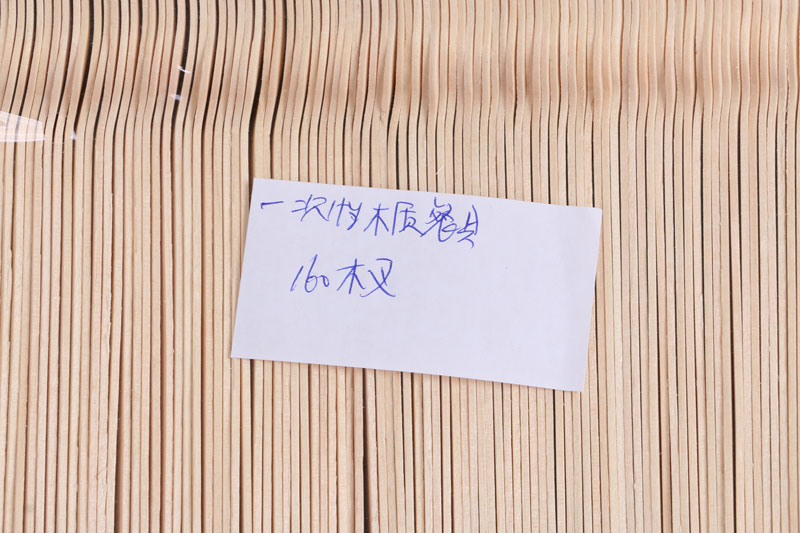 一次性木质餐具
160木叉